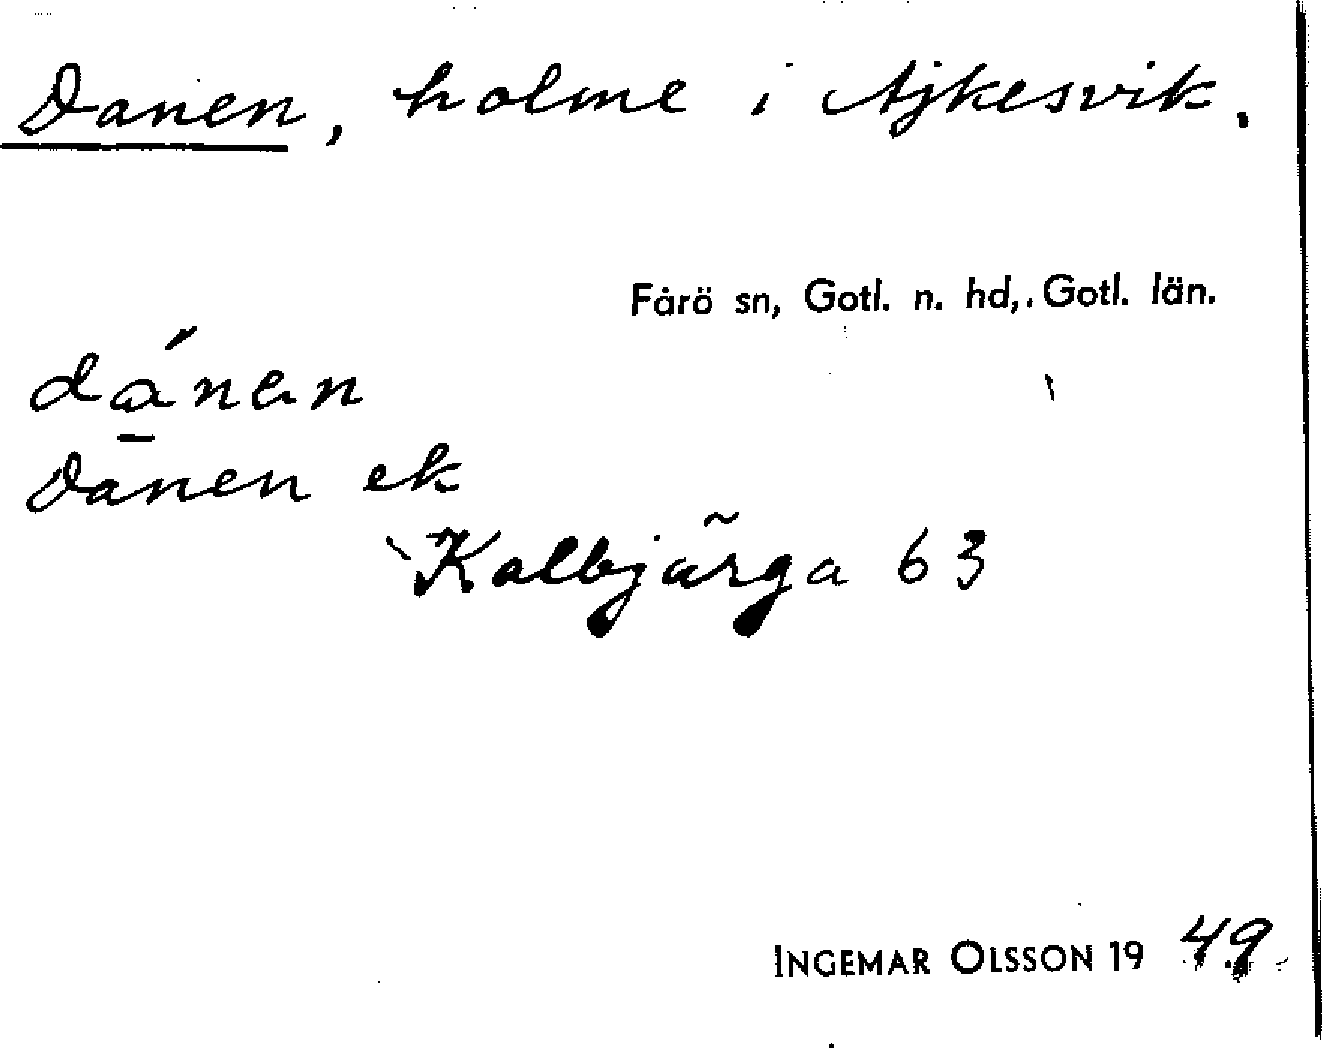 Danen, holme i Ajkesvik.
Fårö sn, Gotl. n. hd, Gotl. län.
dánen
Dänen ek
Kalbjärga 63
INGEMAR OLSSON 1949